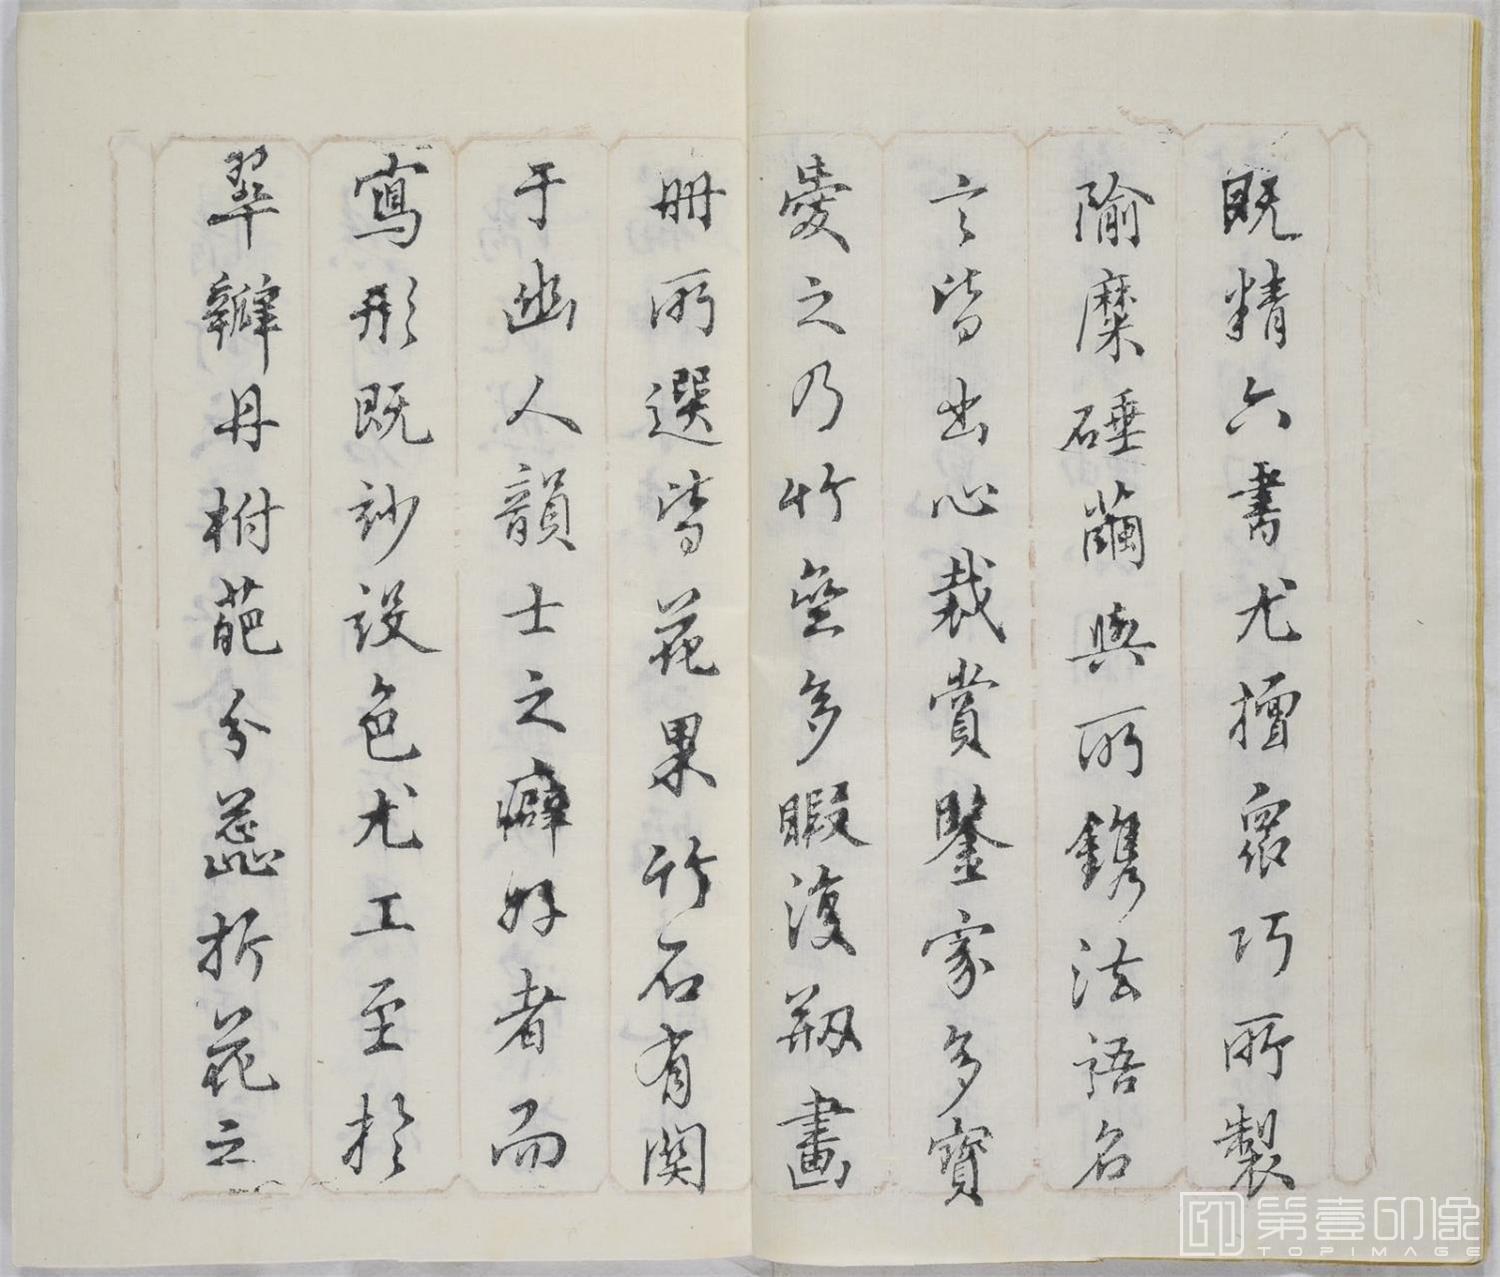 既精六書尤擅衆巧所製
隃糜硾繭與所鐫法語名
言皆出心裁賞鑒家多寶
愛之乃竹無多暇復剏畫
冊所選皆花果竹石有關
于幽人韻士之癖好者而
寫形既玅設色尤工至於
翠瓣丹柎葩分蕊折花之
第壹印像
TOPIMAGE